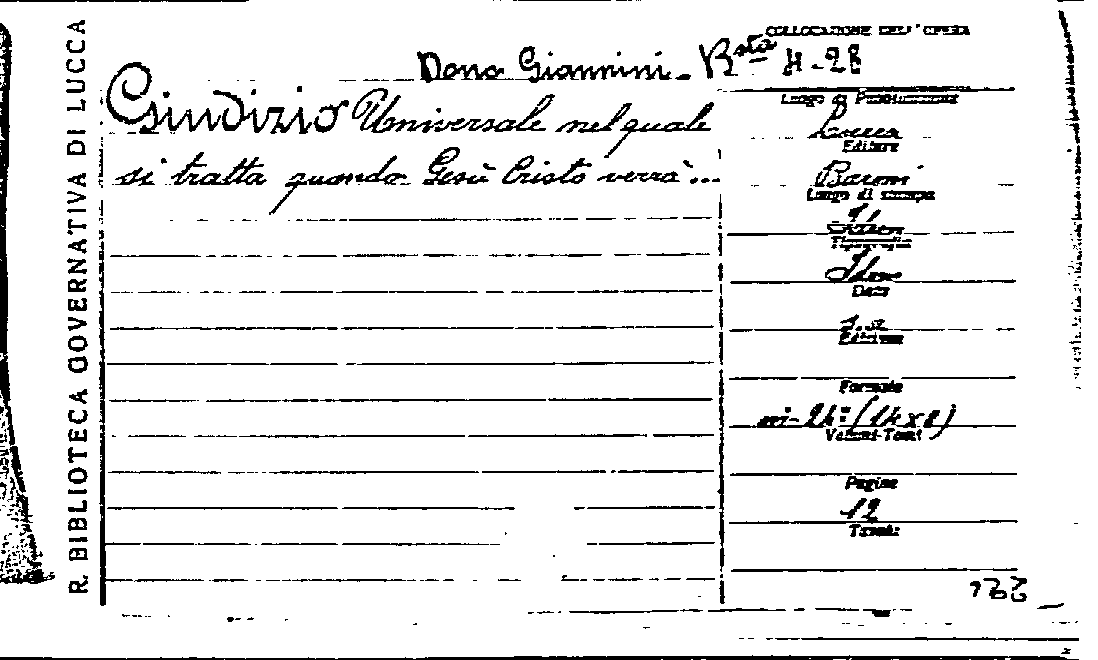 R. BIBLIOTECA GOVERNATIVA DI LUCCA
COLLOCAZIONE DELL'OPERA
Dono Giannini - Bsta H-28
Giudizio Universale nel quale
si tratta quando Gesù Cristo verrà...
Luogo di Pubblicazione
Lucca
Editore
Baroni
Luogo di stampa
Idem
Tipografia
Idem
Data
s.a.
Edizione
Formato
in-24º (14x8)
Volumi-Tomi
Pagine
12
Tavole